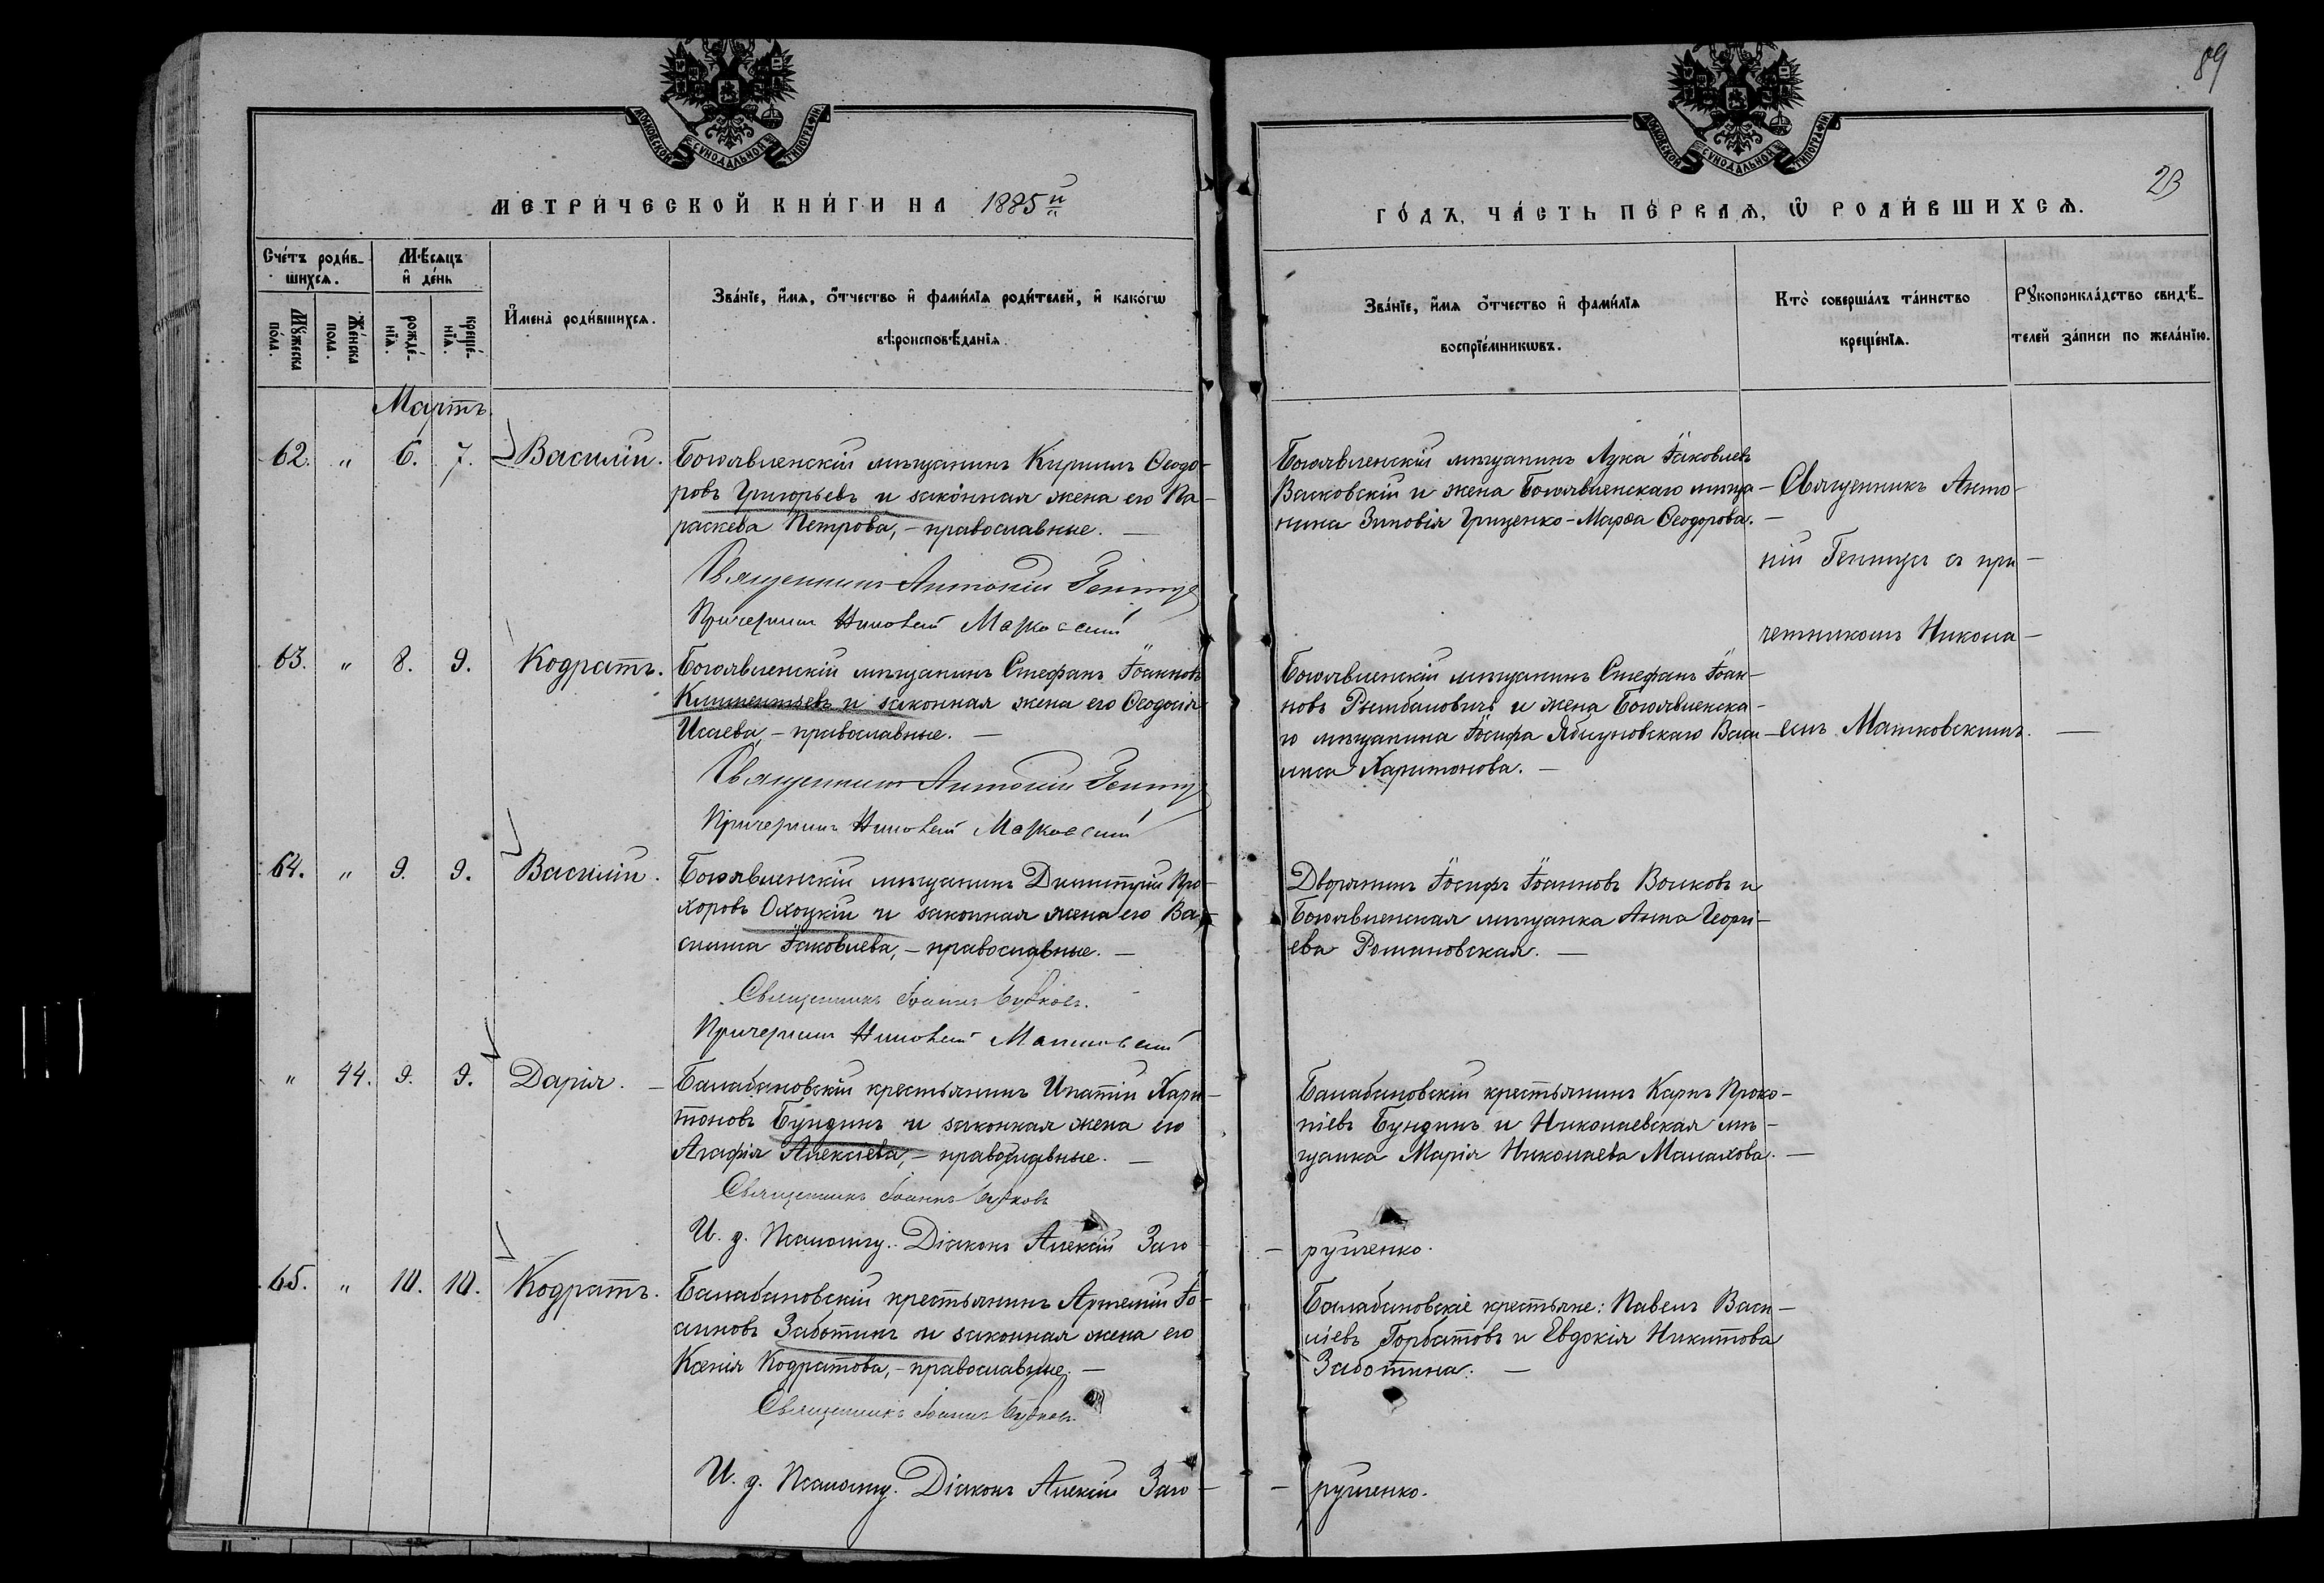 89
МОСКОВСКОЙ СѴНОДАЛЬНОЙ ТИПОГРАФІИ
МОСКОВСКОЙ СѴНОДАЛЬНОЙ ТИПОГРАФІИ
23
МЕТРИ́ЧЕСКОЙ КНИ́ГИ НА 1885й
ГО́ДЪ, ЧА́СТЬ ПЕ́РВАѦ, Ѡ҆ РОДИ́ВШИХСѦ.
Сче́тъ роди́в-
шихсѧ.
Мѣ́сѧцъ
и҆ де́нь
Мꙋ́жеска
по́ла.
Же́нска
пола.
рожде́-
нїѧ.
креще́-
нїѧ.
И҆мена̀ роди́вшихсѧ.
Зва́нїе, и҆́мѧ, ѻ҆́тчество и҆ фами́лїѧ роди́телей, и҆ како́гѡ
вѣроисповѣ́данїѧ.
Зва́нїе, и҆́мѧ ѻ҆́тчество и҆ фами́лїѧ
воспрїе́мникѡвъ.
Кто̀ соверша́лъ та́инство
креще́нїѧ.
Рꙋкоприкла́дство свидѣ́-
телей за́писи по жела́нїю.
Мартъ
62. " 6. 7. Василій.
Богоявленскій мѣщанинъ Кириллъ Ѳеодо-
ровъ Григорьевъ и законная жена его Па-
раскева Петрова, - православные. —
Священникъ Антоній Гентуз
Причетникъ Николай Матковский
Богоявленскій мѣщанинъ Лука Іаковлевъ
Васковскій и жена Богоявленскаго мѣща-
нина Зиновія Гриценко - Марѳа Ѳеодорова. —
Священникъ Анто-
ній
съ при-
четникомъ Никола-
емъ Матковскимъ. —
63. " 8. 9. Кодратъ.
Богоявленскій мѣщанинъ Стефанъ Іоанновъ
Климентьевъ и законная жена его Ѳеодосія
Исаева, - православные. —
Священникъ Антоній Гентуз
Причетникъ Николай Матковский
Богоявленскій мѣщанинъ Стефанъ Іоан-
новъ Рымбаловичъ и жена Богоявленска-
го мѣщанина Іосифа Яблуновскаго Васи-
лиса Харитонова. —
64. " 9. 9. Василій.
Богоявленскій мѣщанинъ Димитрій Про-
хоровъ Охоцкій и законная жена его Ва-
силиса Іаковлева, - православные. —
Священникъ Іоаннъ
Причетникъ Николай Матковский
Дворянинъ Іосифъ Іоанновъ Волковъ и
Богоявленская мѣщанка Анна Георгі-
ева Романовская. —
" 44. 9. 9. Дарія. —
Балабановскій крестьянинъ Ипатій Хари-
тоновъ Бундинъ и законная жена его
Агафія Алексіева, - православные. —
Священникъ Іоаннъ
И. д. Псаломщ. Діаконъ Алексій Заго-
Балабановскій крестьянинъ Карпъ Проко-
піевъ Бундинъ и Николаевская мѣ-
щанка Марія Николаева Малахова. —
- рулченко.
65. " 10. 10. Кодратъ.
Балабановскій крестьянинъ Артемій Іо-
анновъ Заботинъ и законная жена его
Ксенія Кодратова, - православные. —
Священникъ Іоаннъ
И. д. Псаломщ. Діаконъ Алексій Заго-
Балабановскіе крестьяне: Павелъ Васи-
ліевъ Горбатовъ и Евдокія Никитова
Заботина. —
- рулченко.